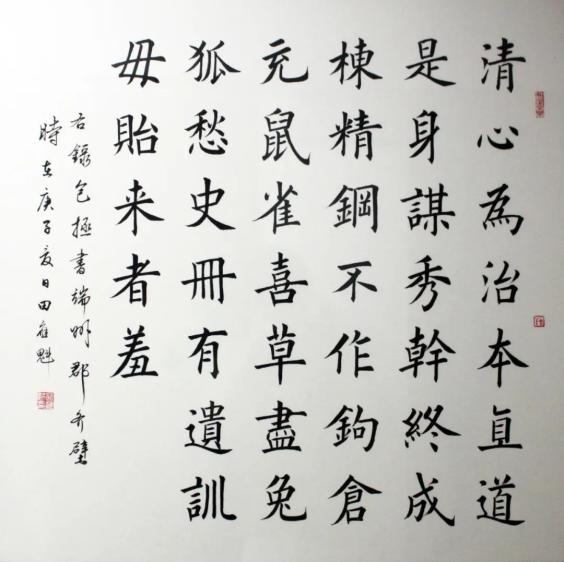 清心為治本直道
是身謀秀幹終成
棟精鋼不作鉤倉
充鼠雀喜草盡兔
狐愁史冊有遺訓
毋貽来者羞
右錄包拯書端州郡斉壁
時在庚子夏日田魁